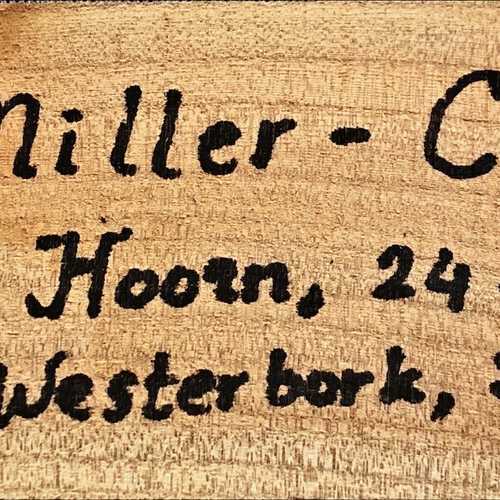 Miller - C
Hoorn, 24
Westerbork,